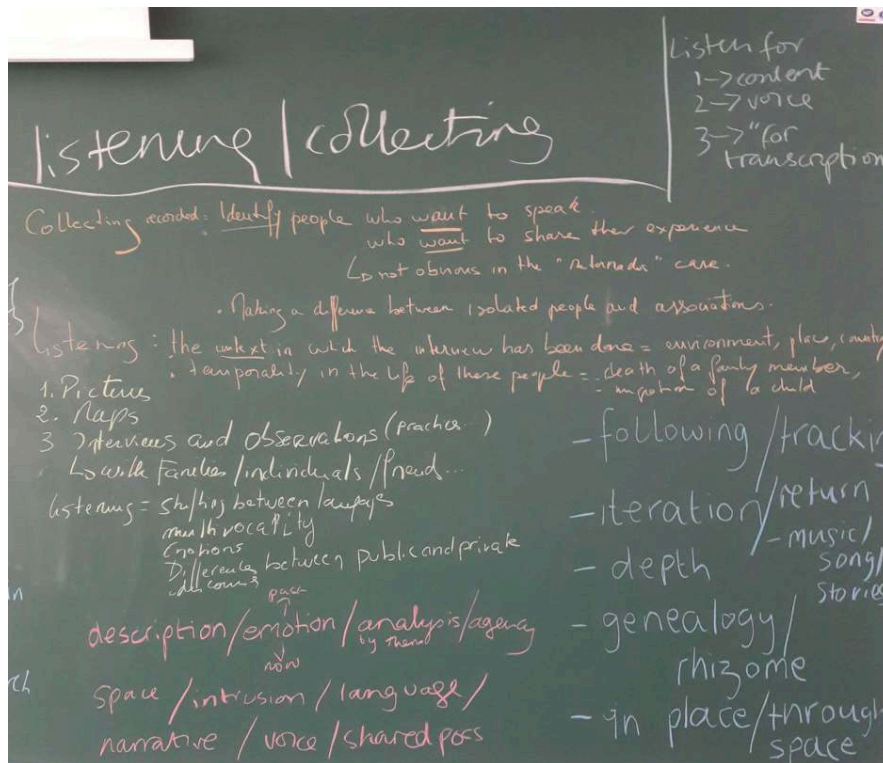 listening / collecting
Listen for
1 → content
2 → voice
3 → "for
transcription
Collecting recorded: Identify people who want to speak.
who want to share their experience
↳ not obvious in the "retornados" case.
. Making a difference between isolated people and associations.
Listening: the context in which the interview has been done = environment, place, country
. temporality in the life of these people = - death of a family member,
- migration of a child
1. Pictures
2. Maps
3 Interviews and observations (practices...)
↳ with Families / individuals / friend...
listening = shifting between languages
multivocality
Emotions
Differences between public and private
discours
description / emotion / analysis / agency
past
by them
now
space / intrusion / language /
narrative / voice / shared pocs
- following / tracking
- iteration / return
- music /
song /
stories
- depth
- genealogy /
rhizome
- in place / through
space